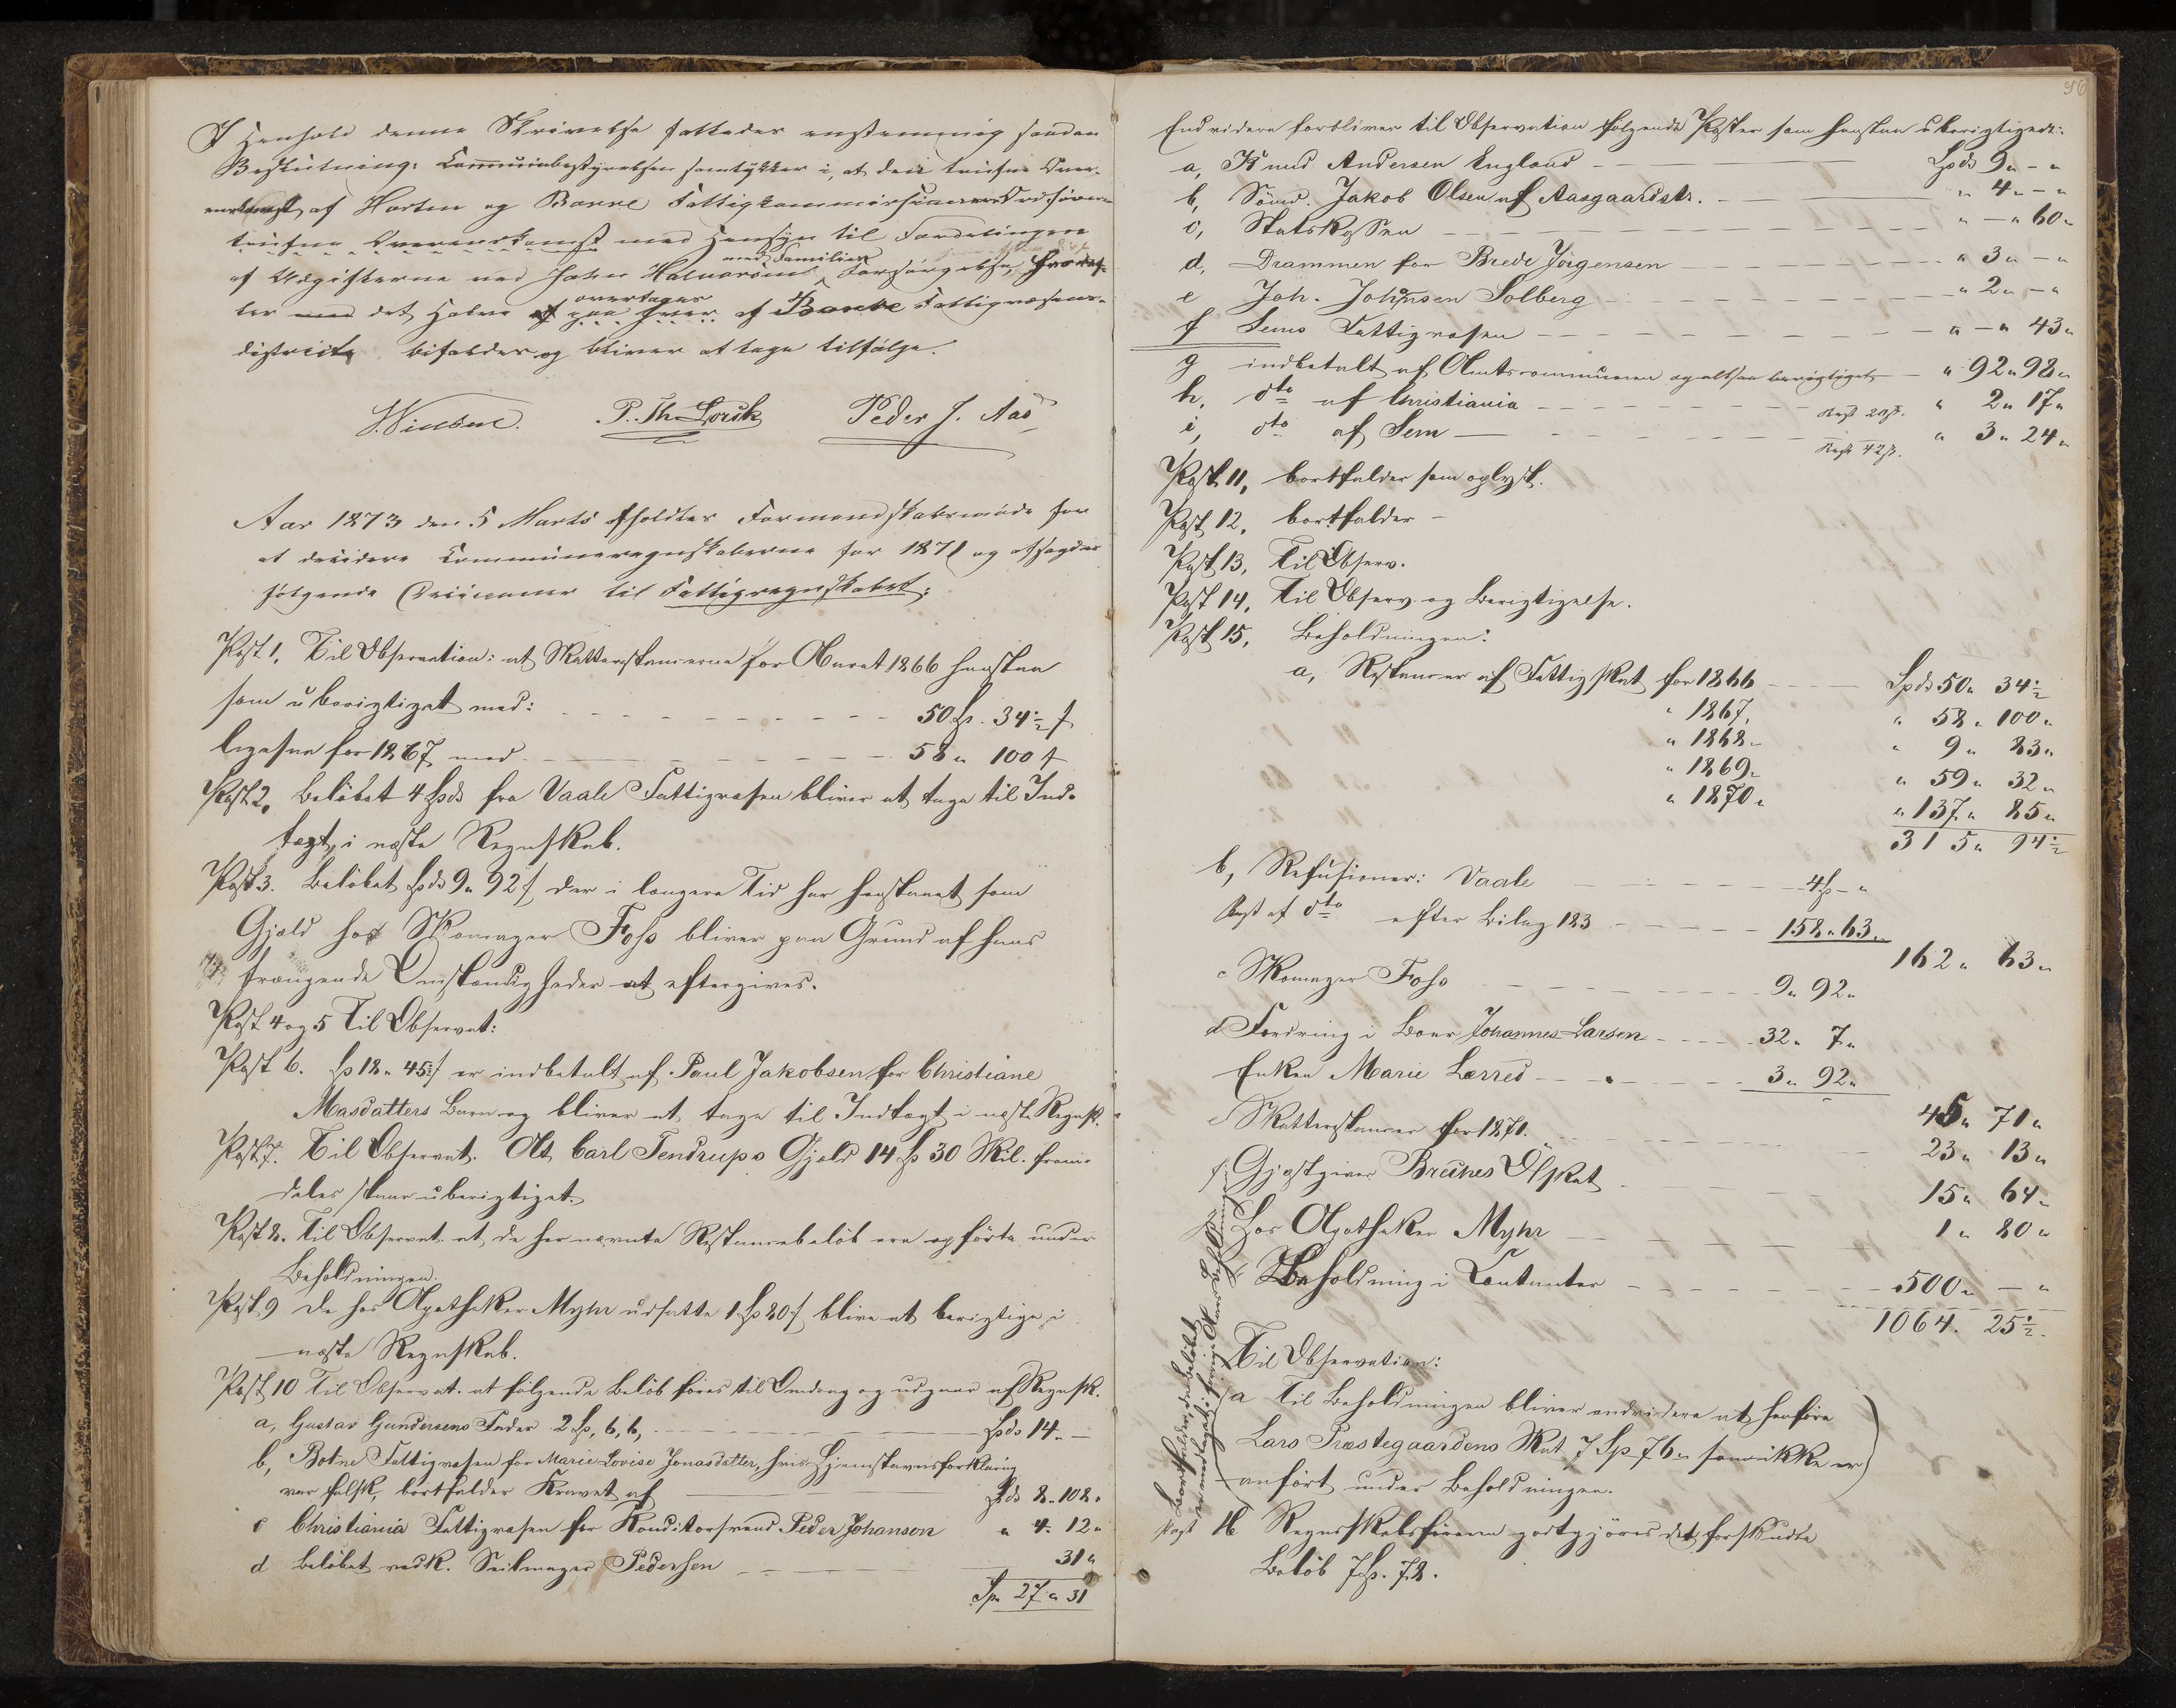 I Henhold denne Skrivelse fattedes enstemmig saadan
Beslutning: Communebestyrelsen samtykker i, at den trufne Over-
enskomst af Horten og Borre Fattigkommissioner
trufne Overenskomst med Hensyn til Fordelingen
af Udgifterne ved Johan Halvorsens med Familie Forsørgelse,
ler med det Halve overtages af Borre Fattigvæsens-
district, bifaldes og bliver at tage tilfølge.
P. Th. Lorck Peder J. Aas
Aar 1873 den 5 Marts afholdtes Formandskabsmøde for
at decidere Communeregnskaberne for 1871 og afsagdes
følgende Decisioner til Fattigregnskabet:
Post 1. Til Observation: at Skatterestancerne for Aaret 1866 henstaa
som uberigtiget med: 50 Sp. 34½ s
ligesaa for 1867 med 58 " 100 s
Post 2. Beløbet 4 Spd fra Vaale Fattigvæsen bliver at tage til Ind-
tægt i næste Regnskab.
Post 3. Beløbet Spd 9 " 92 s der i længere Tid har henstaaet som
Gjæld hos Skomager Foss bliver paa Grund af hans
trængende Omstændigheder at eftergives.
Post 4 og 5 Til Observat:
Post 6. Sp 18 " 45 s er indbetalt af Paul Jakobsen for Christiane
Masdatters Barn og bliver at tage til Indtægt i næste Regnsk.
Post 7. Til Observat. At Carl Tendrups Gjæld 14 Sp 30 Skil. frem-
deles staar uberigtiget.
Post 8. Til Observat. at de her nævnte Restancebeløb ere opførte under
Beholdningen.
Post 9 De hos Apotheker Myhr udsatte 1 Sp 80 s blive at berigtige i
næste Regnskab.
Post 10 Til Observat. at følgende Beløb føres til Omdrag og udgaar af Regnsk.
a, Gustav Gundersens Fader 2 Sp, 6, 6, Spd 14 " —
b, Botne Fattigvæsen for Marie Lovise Jonasdatter, hvis Hjemstavnsforklaring
var falsk, bortfalder Kravet af Spd 8 " 108 "
c Christiania Fattigvæsen for Konditorsvend Peder Johansen " 4 " 12 "
d Beløbet vedk. Seilmager Pedersen 31 "
Sp 27 " 31
96
Endvidere forbliver til Observation følgende Poster som henstaa uberigtigede:
a, Knud Andersen England Spd 9 " - "
b, Sömd. Jakob Olsen af Aasgaardstr. " 4 " - "
c, Statskassen " — " 60 "
d, Drammen for Brede Jörgensen " 3 " - "
e Joh. Johansen Solberg " 2 " - "
f Sems Fattigvæsen " - " 43 "
g indbetalt af Amtscommunen og altsaa berigtiget " 92 " 98 "
h, dto af Christiania Rest 20 s. " 2 " 17 "
i, dto af Sem Rest 42 s. " 3 " 24 "
Post 11, bortfalder som oplyst.
Post 12, bortfalder -
Post 13, Til Observ.
Post 14, Til Observ. og Berigtigelse.
Post 15, Beholdningen:
a, Restancer af Fattigskat for 1866 Spd 50 " 34½
" 1867, " 58 " 100 "
" 1868 " " 9 " 83 "
" 1869 " " 59 " 32 "
" 1870 " " 137 " 85 "
315 " 94½
b, Refusioner: Vaale 4 Sp - "
Rest af dto efter Bilag 183 158 " 63 "
162 " 63 "
c Skomager Foss 9 " 92 "
d Fordring i Boer Johannes Larsen 32 " 7 "
Enken Marie Lærred 3 " 92 "
45 " 71 "
e Skatterestancer for 1871. 23 " 13 "
f Gjæstgiver Bruhns Ølskat 15 " 64 "
g Hos Apotheker Myhr 1 " 80 "
h Beholdning i Contanter 500 " — "
1064. 25½.
Til Observation:
a Til Beholdningen bliver endvidere at henføre
Lars Præstegaardens Skat 7 Sp 76 " som ikke er
anført under Beholdningen.
Bortfalder, da beløbet
er medtaget i forrige Aars Beholdning
Post 16 Regnskabsføreren godtgjøres det forskudte
Beløb 7 Sp. 78.